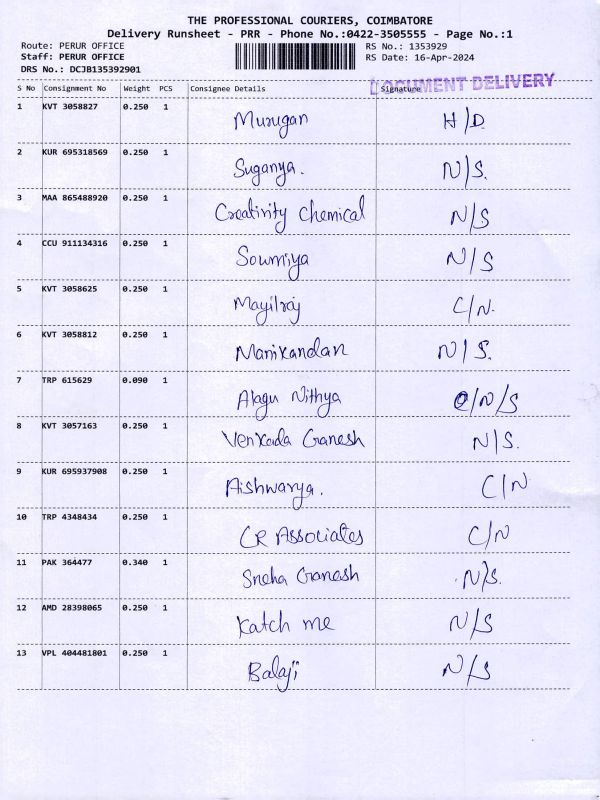 THE PROFESSIONAL COURIERS, COIMBATORE
Delivery Runsheet - PRR - Phone No.:0422-3505555 - Page No.:1
Route: PERUR OFFICE RS No.: 1353929
Staff: PERUR OFFICE RS Date: 16-Apr-2024
DRS No.: DCJB135392901
DOCUMENT DELIVERY
S No Consignment No Weight PCS Consignee Details Signature
1 KVT 3058827 0.250 1 Murugan H/D.
2 KUR 695318569 0.250 1 Suganya. N/S.
3 MAA 865488920 0.250 1 Creativity Chemical N/S
4 CCU 911134316 0.250 1 Sowmiya N/S
5 KVT 3058625 0.250 1 Mayilraj C/N.
6 KVT 3058812 0.250 1 Manikandan N/S.
7 TRP 615629 0.090 1 Alagu Nithya C/N/S
8 KVT 3057163 0.250 1 Venkada Ganesh N/S.
9 KUR 695937908 0.250 1 Aishwarya. C/N
10 TRP 4348434 0.250 1 CR Associates C/N
11 PAK 364477 0.340 1 Sneha Ganesh N/S.
12 AMD 28398065 0.250 1 Katch me N/S
13 VPL 404481801 0.250 1 Balaji N/S